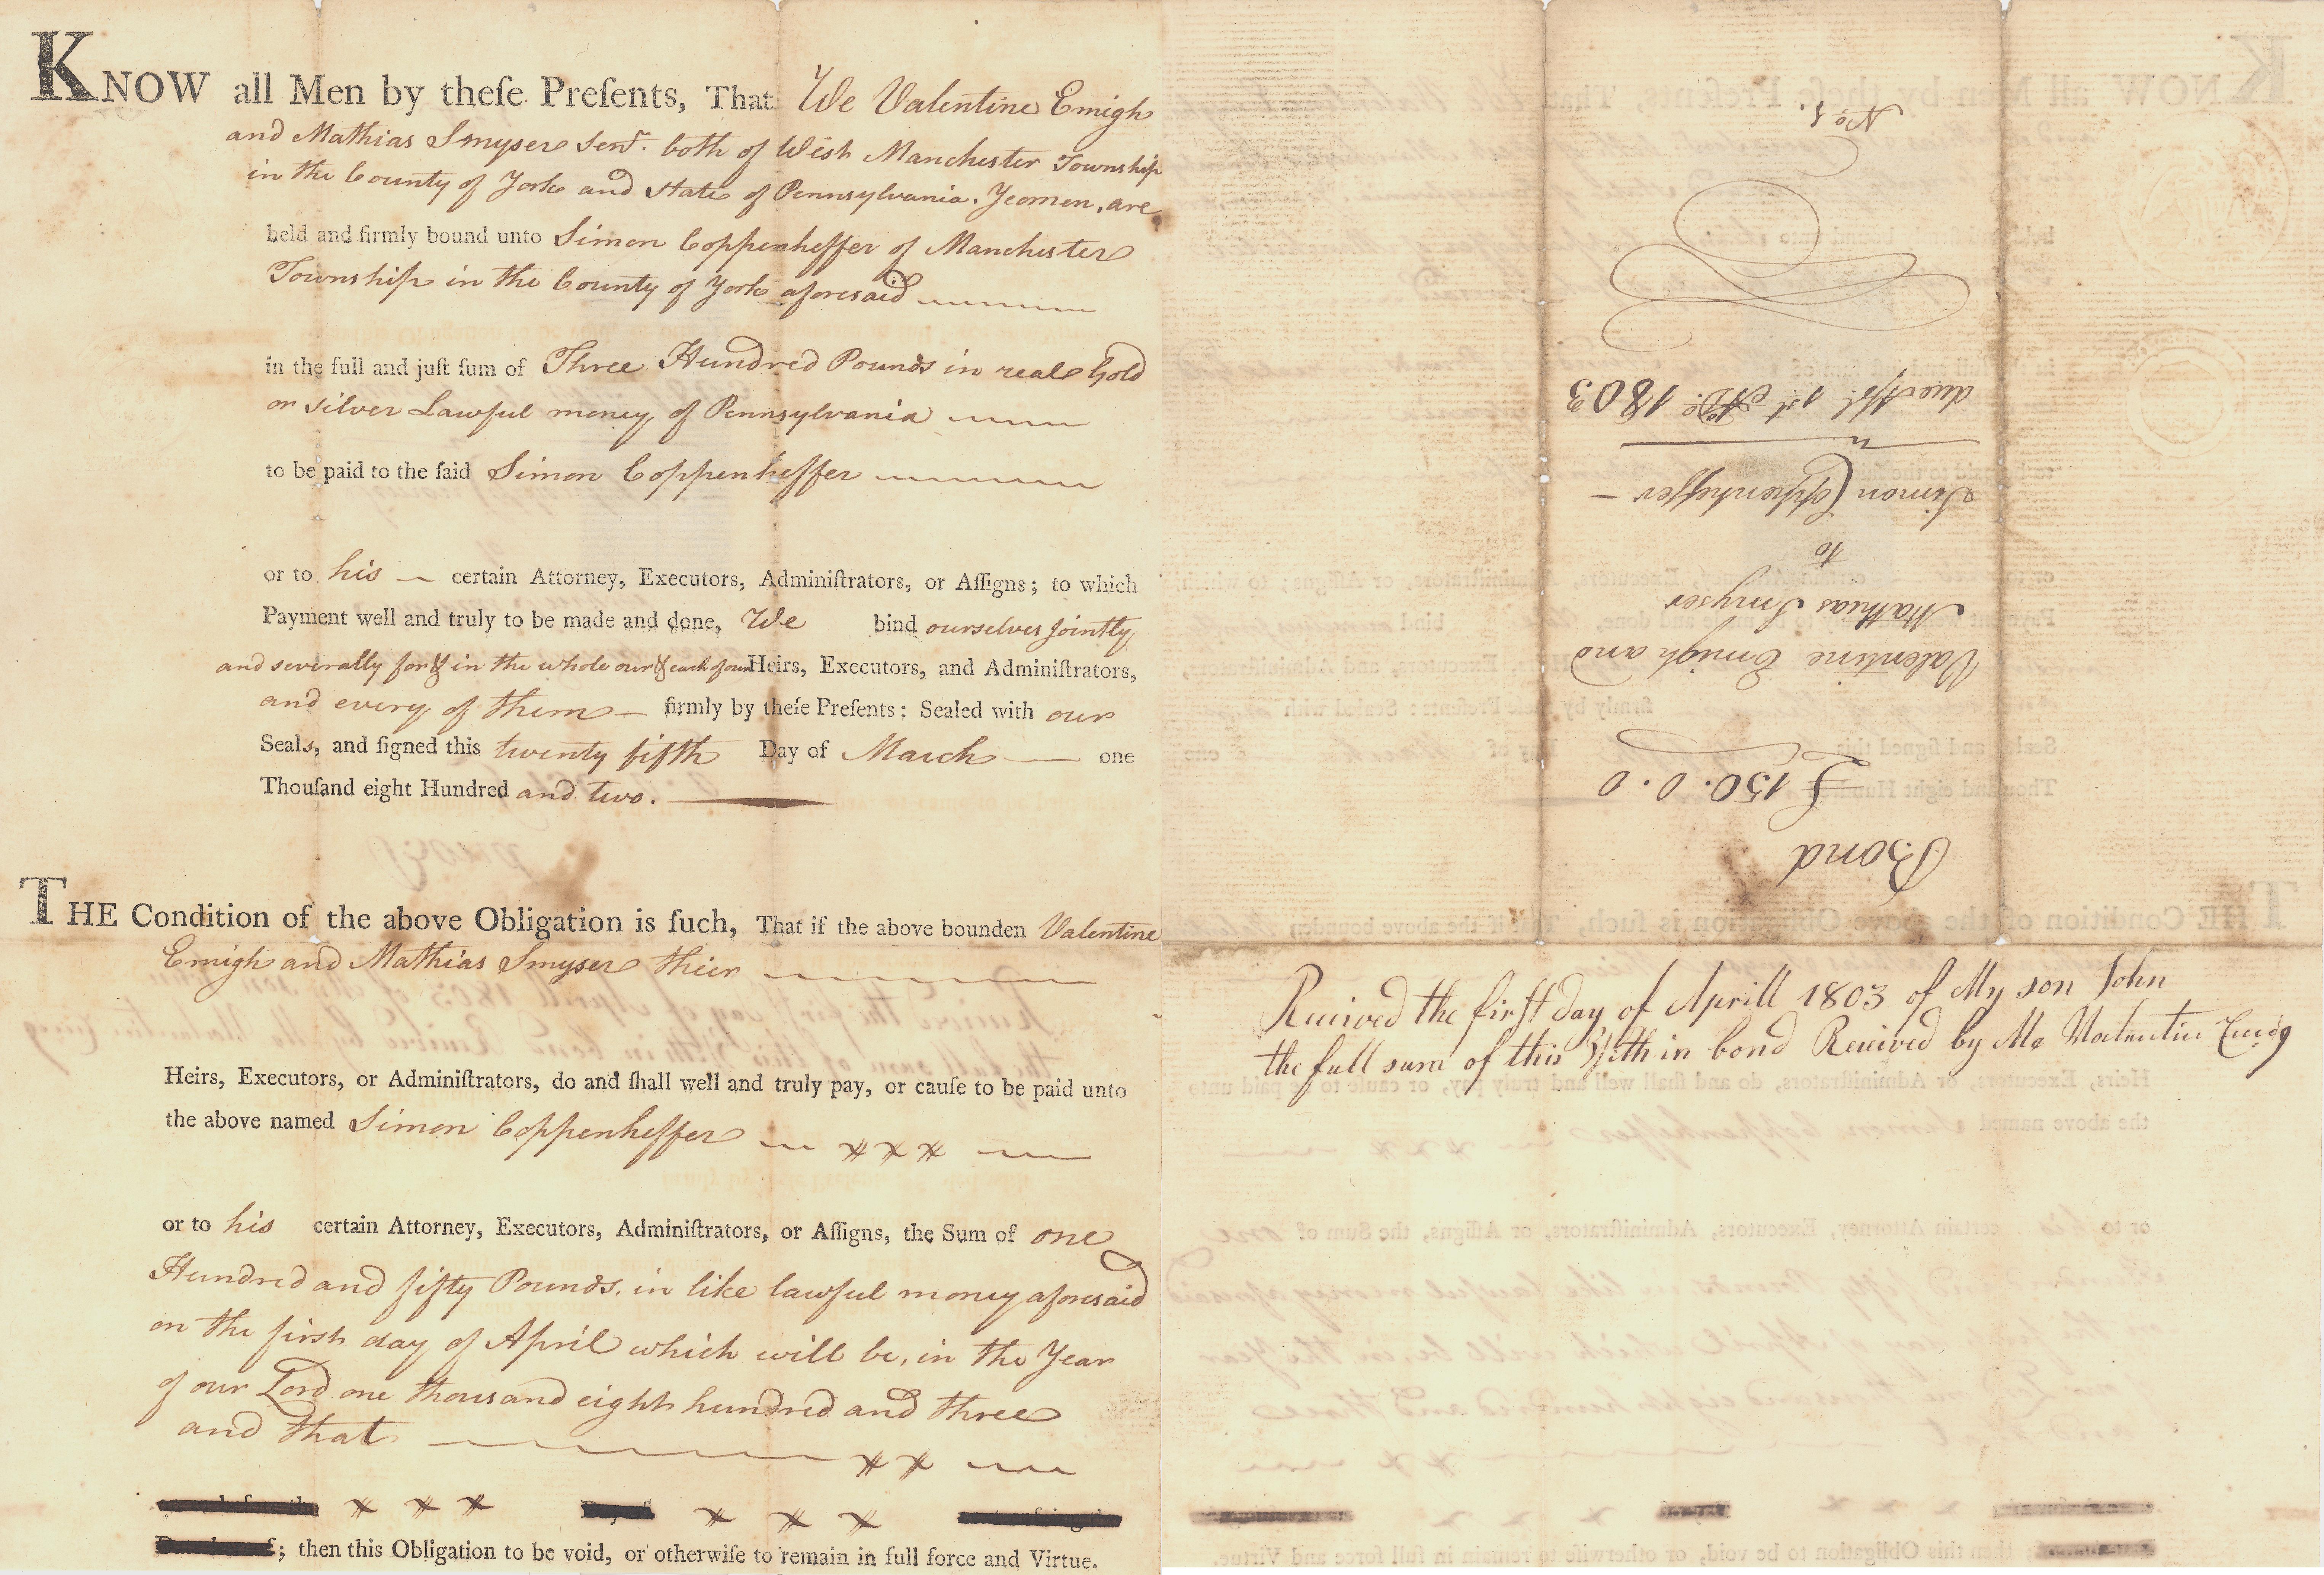 KNOW all Men by theſe Preſents, That We Valentine Emigh
and Mathias Smyser Senr. both of West Manchester Township
in the County of York and State of Pennsylvania. Yeomen, are
held and firmly bound unto Simon Coppenheffer of Manchester
Township in the County of York aforesaid
in the full and juſt ſum of Three Hundred Pounds in real Gold
or Silver Lawful money of Pennsylvania
to be paid to the ſaid Simon Coppenheffer
or to his certain Attorney, Executors, Adminiſtrators, or Aſſigns; to which
Payment well and truly to be made and done, We bind ourselves jointly
and severally for & in the whole our & each of our Heirs, Executors, and Adminiſtrators,
and every of them firmly by theſe Preſents: Sealed with our
Seals, and ſigned this twenty fifth Day of March one
Thouſand eight Hundred and two.
THE Condition of the above Obligation is ſuch, That if the above bounden Valentine
Emigh and Mathias Smyser their
Heirs, Executors, or Adminiſtrators, do and ſhall well and truly pay, or cauſe to be paid unto
the above named Simon Coppenheffer
or to his certain Attorney, Executors, Adminiſtrators, or Aſſigns, the Sum of one
Hundred and fifty Pounds, in like lawful money aforesaid
on the first day of April which will be, in the Year
of our Lord one thousand eight hundred and three
and that
; then this Obligation to be void, or otherwiſe to remain in full force and Virtue.
Bond
£150.0.0
Valentine Emigh and
Mathias Smyser
to
Simon Coppenheffer
due Apl. 1st AD: 1803
No. 1.
Received the first day of Aprill 1803 of My son John
the full sum of this Within bond Received by Me Valentin Emig